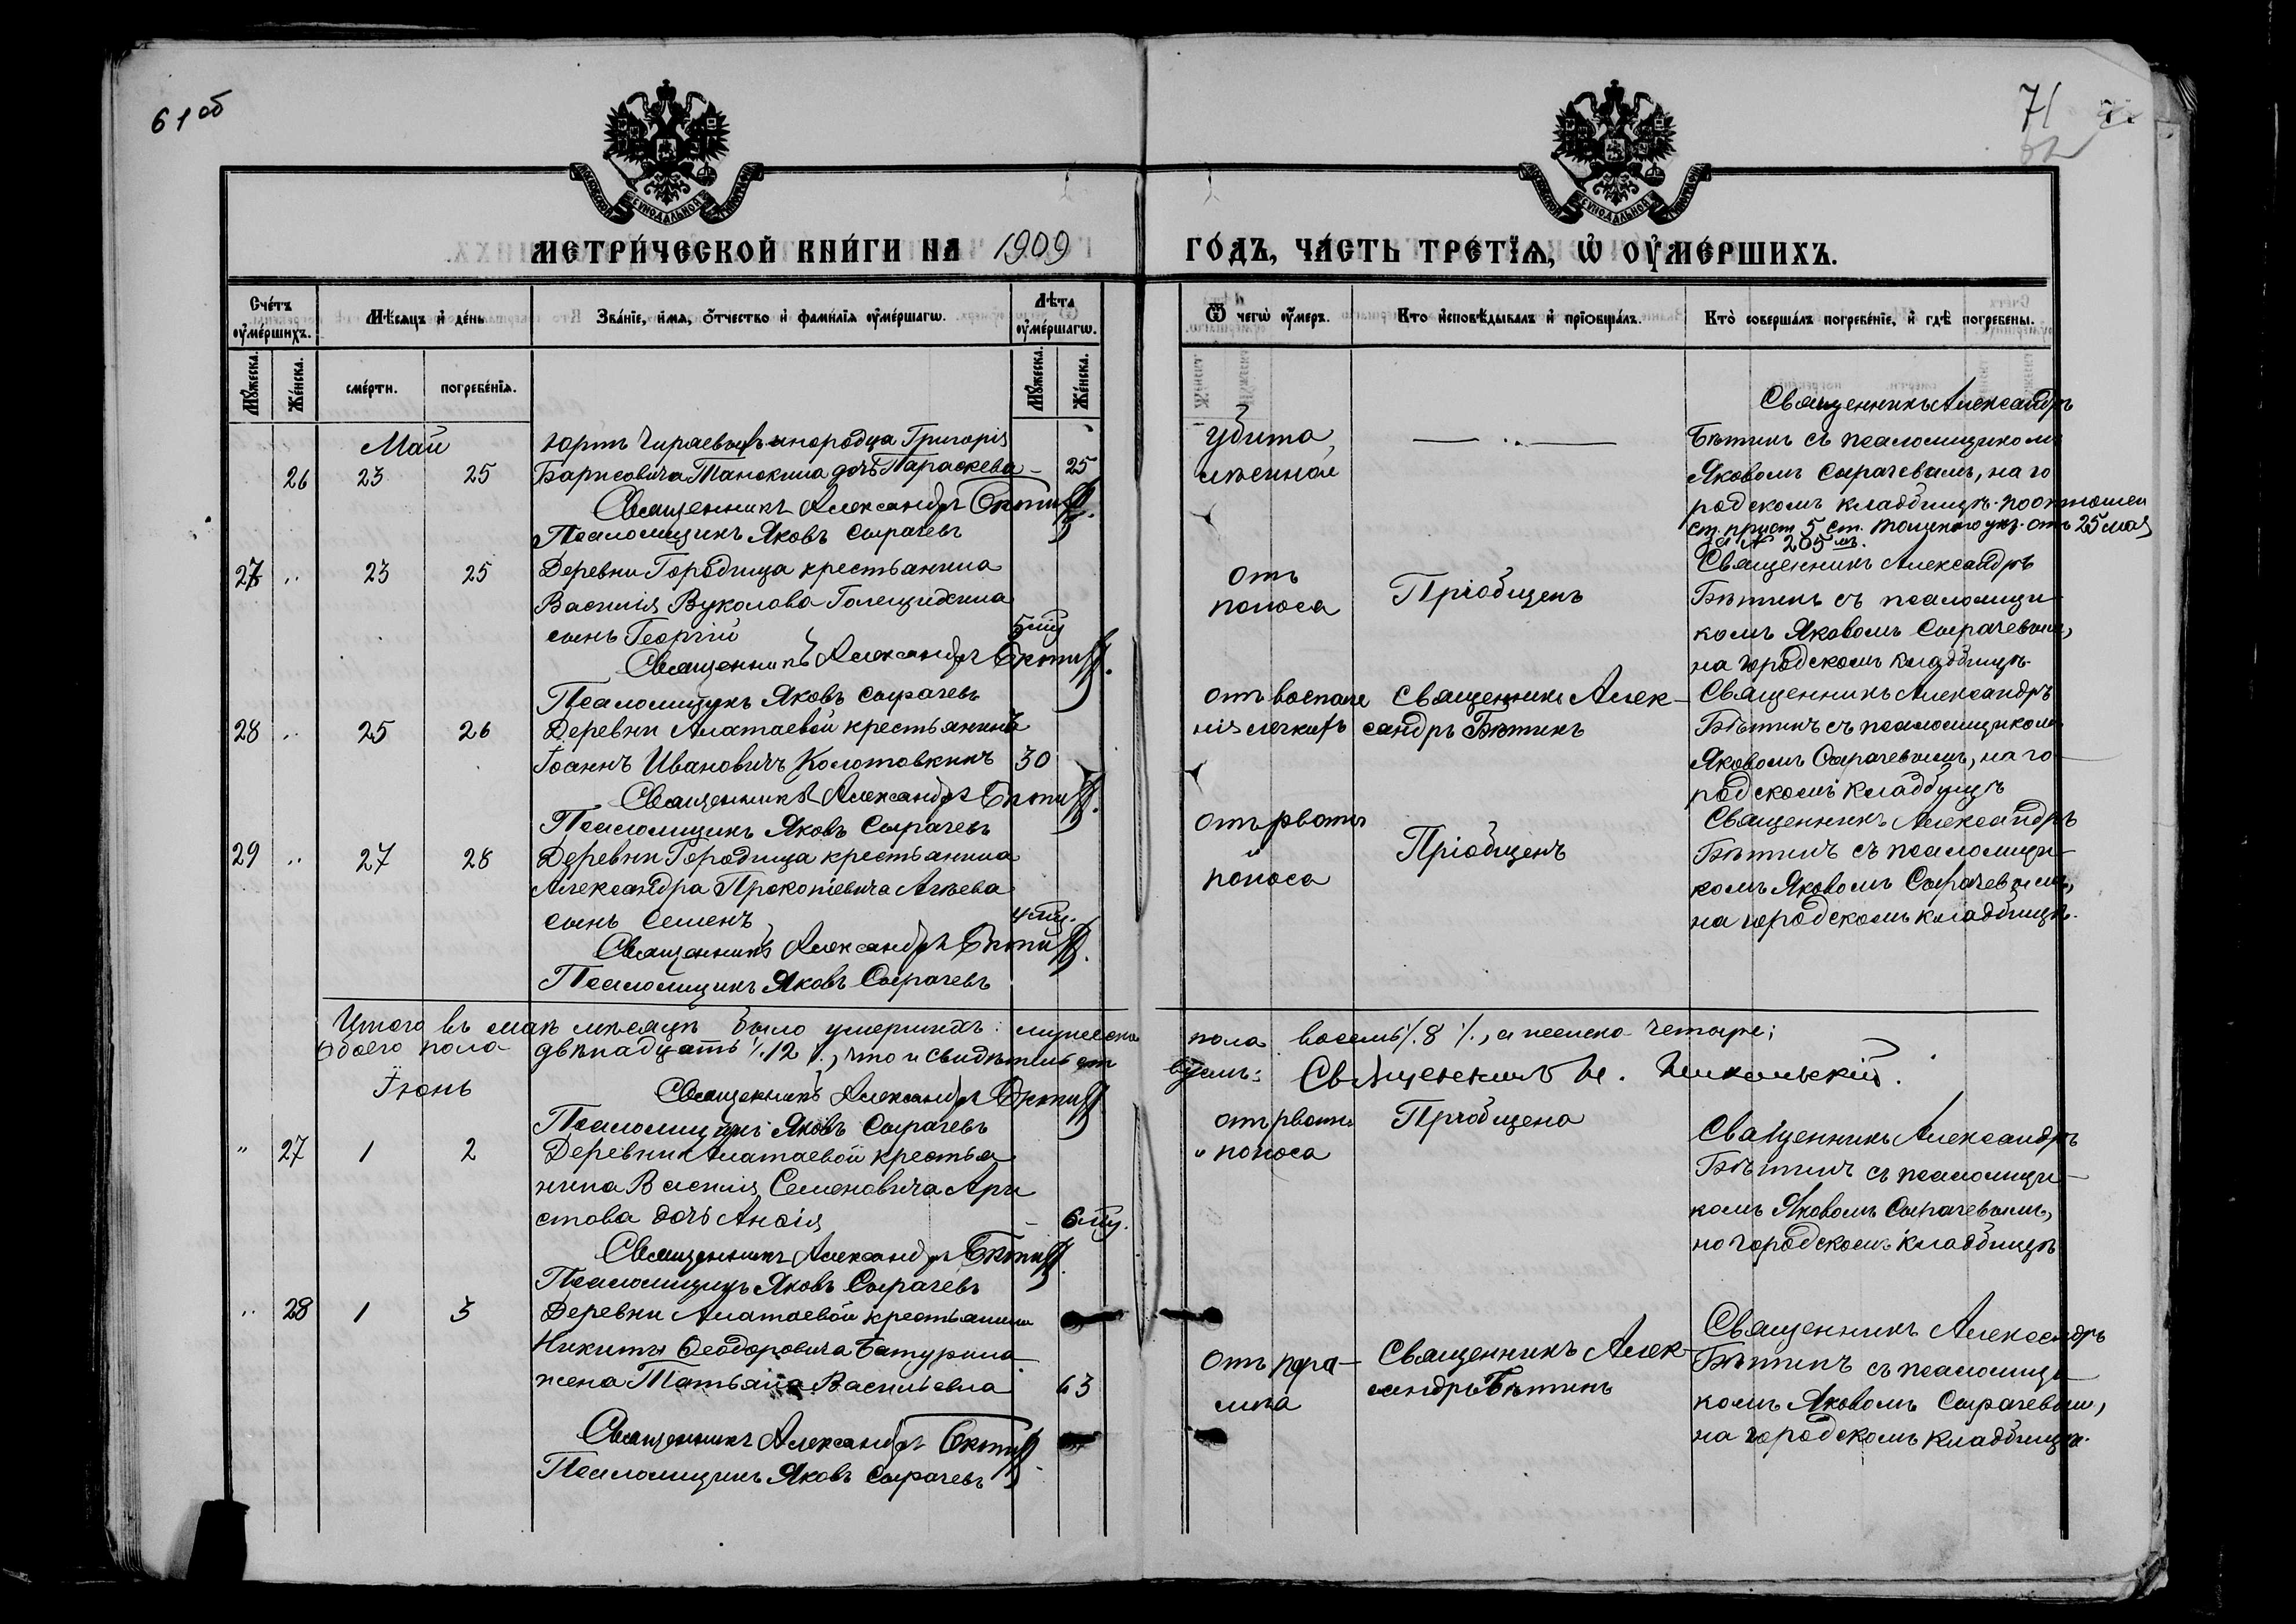 61об
71
МЕТРИ́ЧЕСКОЙ КНИ́ГИ НА 1909 ГО́ДЪ, ЧА́СТЬ ТРЕ́ТІѦ, Ѡ҆ ОУ҆МЕ́РШИХЪ.
Сче́тъ оу҆ме́ршихъ.
Мѣ́сяцъ и҆ де́нь
Зва́нїе, и҆́мя, о҆́тчество и҆ фами́лїя оу҆ме́ршагѡ.
Лѣ́та оу҆ме́ршагѡ.
Ѿ чегѡ̀ оу҆́меръ.
Кто̀ и҆сповѣ́дывалъ и҆ прїѻбща́лъ.
Кто̀ соверша́лъ погребе́нїе, и҆ гдѣ̀ погребены.
Мꙋ́жеска.
Же́нска.
сме́рти.
погребе́нїя.
Мꙋ́жеска.
Же́нска.
Май
26 23 25
Юртъ инородца Григорія
Барисовича дочь Параскева - 25
Священникъ Александръ Бѣтинъ
Псаломщикъ Яковъ Сырачевъ
Убита
Священникъ Александръ
Бѣтинъ съ псаломщикомъ
Яковомъ Сырачевымъ, на го
родскомъ кладбищѣ. по отношен
ст. прист. 5 ст. Томскаго уѣз. отъ 25 мая
за № 205мъ.
27 .. 23 25
Деревни Городища крестьянина
Василія Вуколова Голещихина
сынъ Георгій 5 мц
Священникъ Александръ Бѣтинъ
Псаломщикъ Яковъ Сырачевъ
отъ
поноса
Пріобщенъ
Священникъ Александръ
Бѣтинъ съ псаломщи-
комъ Яковомъ Сырачевымъ,
на городскомъ кладбищѣ.
28 .. 25 26
Деревни Алатаевой крестьянинъ
Іоаннъ Ивановичъ Колотовкинъ 30
Священникъ Александръ Бѣтинъ
Псаломщикъ Яковъ Сырачевъ
отъ воспале
нія легкихъ
Священникъ Алек-
сандръ Бѣтинъ
Священникъ Александръ
Бѣтинъ съ псаломщикомъ
Яковомъ Сырачевымъ, на го-
родскомъ кладбищѣ
29 .. 27 28
Деревни Городища крестьянина
Александра Прокопіевича Агѣева
сынъ Семенъ 4 мц.
Священникъ Александръ Бѣтинъ
Псаломщикъ Яковъ Сырачевъ
отъ рвоты
и
поноса
Пріобщенъ
Священникъ Александръ
Бѣтинъ съ псаломщи-
комъ Яковомъ Сырачевымъ,
на городскомъ кладбищѣ.
Итого въ маѣ мѣсяцѣ было умершихъ: мужеска пола восемь /. 8 /., а женска четыре;
Обоего пола двѣнадцать /. 12 /., что и свидѣтельст вуемъ: Священникъ Н. Никольскій.
Священникъ Александръ Бѣтинъ
Псаломщикъ Яковъ Сырачевъ
Іюнь
" 27 1 2
Деревни Алатаевой крестья
нина Василія Семеновича Ари
стова дочь - 6 мц.
Священникъ Александръ Бѣтинъ
Псаломщикъ Яковъ Сырачевъ
отъ рвоты
и поноса
Пріобщена
Священникъ Александръ
Бѣтинъ съ псаломщи-
комъ Яковомъ Сырачевымъ,
на городскомъ кладбищѣ
.. 28 1 3
Деревни Алатаевой крестьянина
Никиты Ѳеодоровича Батурина
жена Татьяна Васильевна 63
Священникъ Александръ Бѣтинъ
Псаломщикъ Яковъ Сырачевъ
Отъ пора-
Священникъ Алек-
сандръ Бѣтинъ
Священникъ Александръ
Бѣтинъ съ псаломщи-
комъ Яковомъ Сырачевымъ,
на городскомъ кладбищѣ.